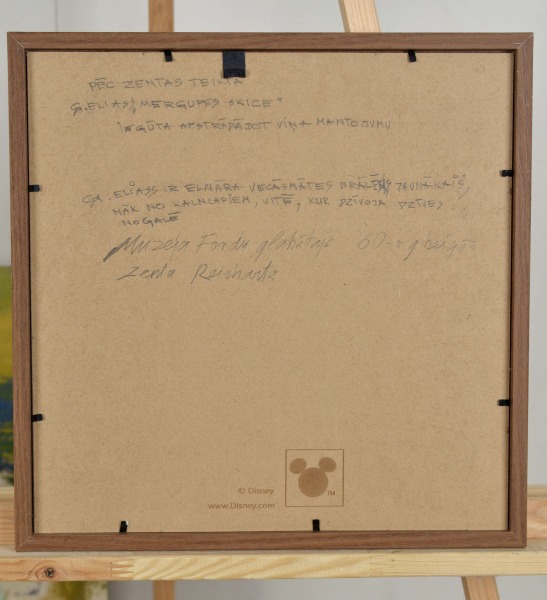 PĒC ZENTAS TEIKTĀ
Ģ. ELIASS, "MERGUPES SKICE"
IEGŪTA APSTRĀDĀJOT VIŅA MANTOJUMU
Ģ. ELIASS IR ELMĀRA VECĀSMĀTES BRĀLIS, JAUNĀKAIS,
NĀK NO KALNLAPIEM, VITĒ, KUR DZĪVOJA DZĪVES
NOGALĒ
Muzeja Fondu glabātāja 60-o g beigās
Zenta Reinharte
© Disney
www.Disney.com
TM